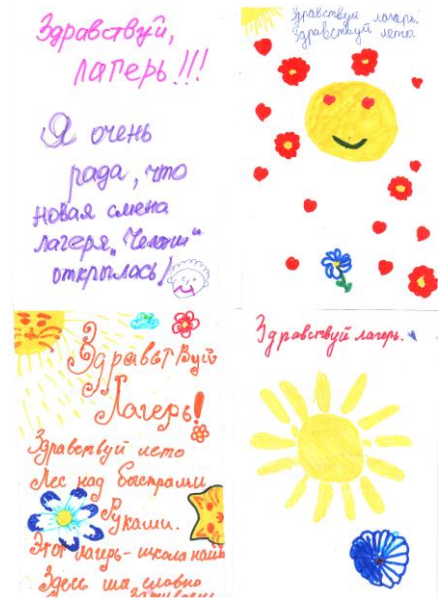 Здравствуй,
лагерь!!!
Я очень
рада, что
новая смена
лагеря
открылась!
Здравствуй лагерь.
Здравствуй лето.
Здравствуй
Лагерь!
Здравствуй лето
Лес над быстрыми
Руками.
Этот лагерь - школа
Здесь мы словно
Здравствуй лагерь.